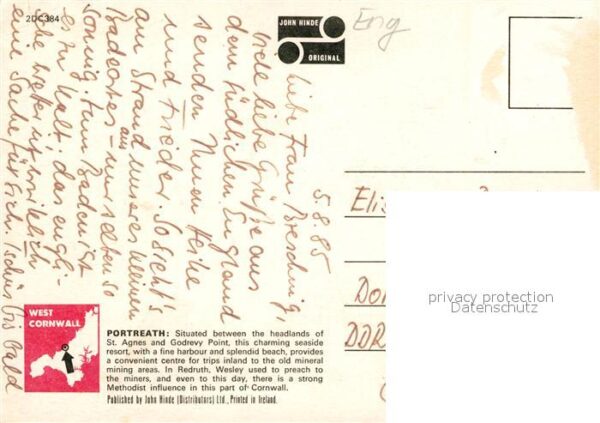 2DC384
JOHN HINDE
ORIGINAL
Eng
5.8.85
Liebe Frau
viele liebe Grüße aus
dem südlichen England
senden Ihnen Heike
und Frieder. So sieht's
am Strand unseres kleinen
Badeortes aus – nur selten so
sonnig. Zum Baden ist
es zu kalt. das engli-
sche Wetter ist wirklich
eine Sache für sich. Tschüs bis bald
Elis
Do
DDR
privacy protection
Datenschutz
WEST
CORNWALL
PORTREATH: Situated between the headlands of
St. Agnes and Godrevy Point, this charming seaside
resort, with a fine harbour and splendid beach, provides
a convenient centre for trips inland to the old mineral
mining areas. In Redruth, Wesley used to preach to
the miners, and even to this day, there is a strong
Methodist influence in this part of Cornwall.
Published by John Hinde (Distributors) Ltd., Printed in Ireland.